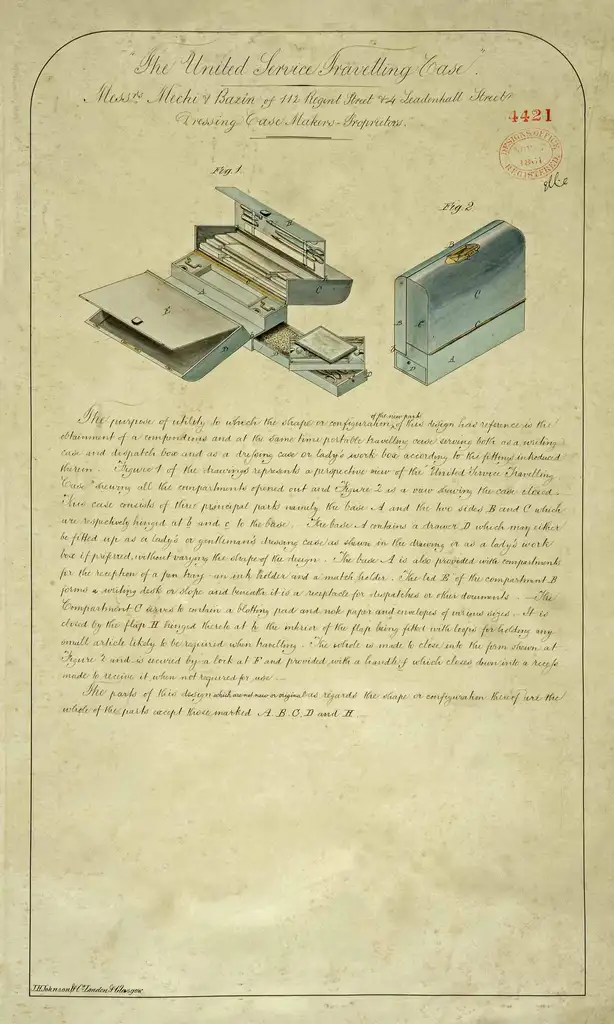 "The United Service Travelling Case".
Messrs Mechi & Bazin of 112 Regent Street & 4 Leadenhall Street
Dressing Case Makers - Proprietors.
4421
DESIGNS OFFICE
1861
REGISTERED
Fig. 1.
Fig. 2.
The purpose of utility to which the shape or configuration of the new parts of this design has reference is the
obtainment of a compendious and at the same time portable travelling case serving both as a writing
case and dispatch box and as a dressing case or lady's work box according to the fittings introduced
therein. Figure 1 of the drawings represents a perspective view of the "United Service Travelling
Case" shewing all the compartments opened out and Figure 2 is a view shewing the case closed.
This case consists of three principal parts namely the base A and the two sides B and C which
are respectively hinged at b and c to the base. The base A contains a drawer D which may either
be fitted up as a lady's or gentleman's dressing case as shown in the drawing or as a lady's work
box if preferred, without varying the shape of the design. The base A is also provided with compartments
for the reception of a pen tray an ink holder and a match holder. The lid E of the compartment B
forms a writing desk or slope and beneath it is a receptacle for dispatches or other documents. The
Compartment C serves to contain a blotting pad and note paper and envelopes of various sizes. It is
closed by the flap H hinged thereto at h the interior of the flap being fitted with loops for holding any
small article likely to be required when travelling. The whole is made to close into the form shewn at
Figure 2 and is secured by a lock at F and provided with a handle f which closes down into a recess
made to receive it when not required for use.
The parts of this design which are not new or original as regards the shape or configuration thereof are the
whole of the parts except those marked A. B. C. D and H.
J.H. Johnson & Co. London & Glasgow.